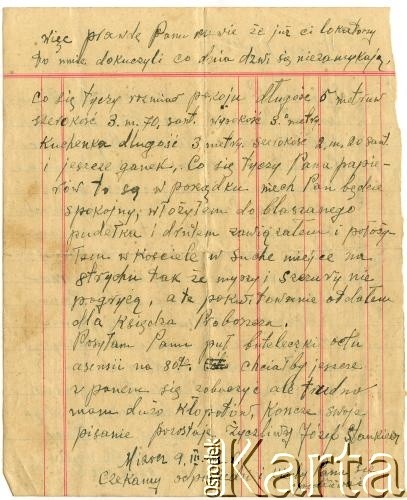 więc prawdę Panu mówię że już ci lokatorzy
to mnie dokuczyli co dnia dzwi są niezamykają,
Co się tyczy rozmiar pokoju długość 5 metrów
szerokość 3. m. 70, sant. wysokość 3. metry.
Kuchenka długość 3 metry. szerokość 2, m. 20 sant.
i jeszcze ganek, Co się tyczy Pana papie-
rów to są w porządku niech Pan będzie
spokojny, włożyłem do blaszanego
pudełka i drutem zawiązałem i położy-
łem w kościele w suche miejsce na
strychu tak że myszy i szczury nie
pogryzą, a te pokwitowanie oddałem
dla Księdza Proboszcza.
Posyłam Panu puł buteleczki octu
esensii na 80% chciałby jeszcze
z panem się zobaczyć ale trudno
mam dużo kłopotów, Koncze swoje
pisanie pozostaję Życzliwy Józef Stankiewicz
9.
Czekamy
Ośrodek
Karta